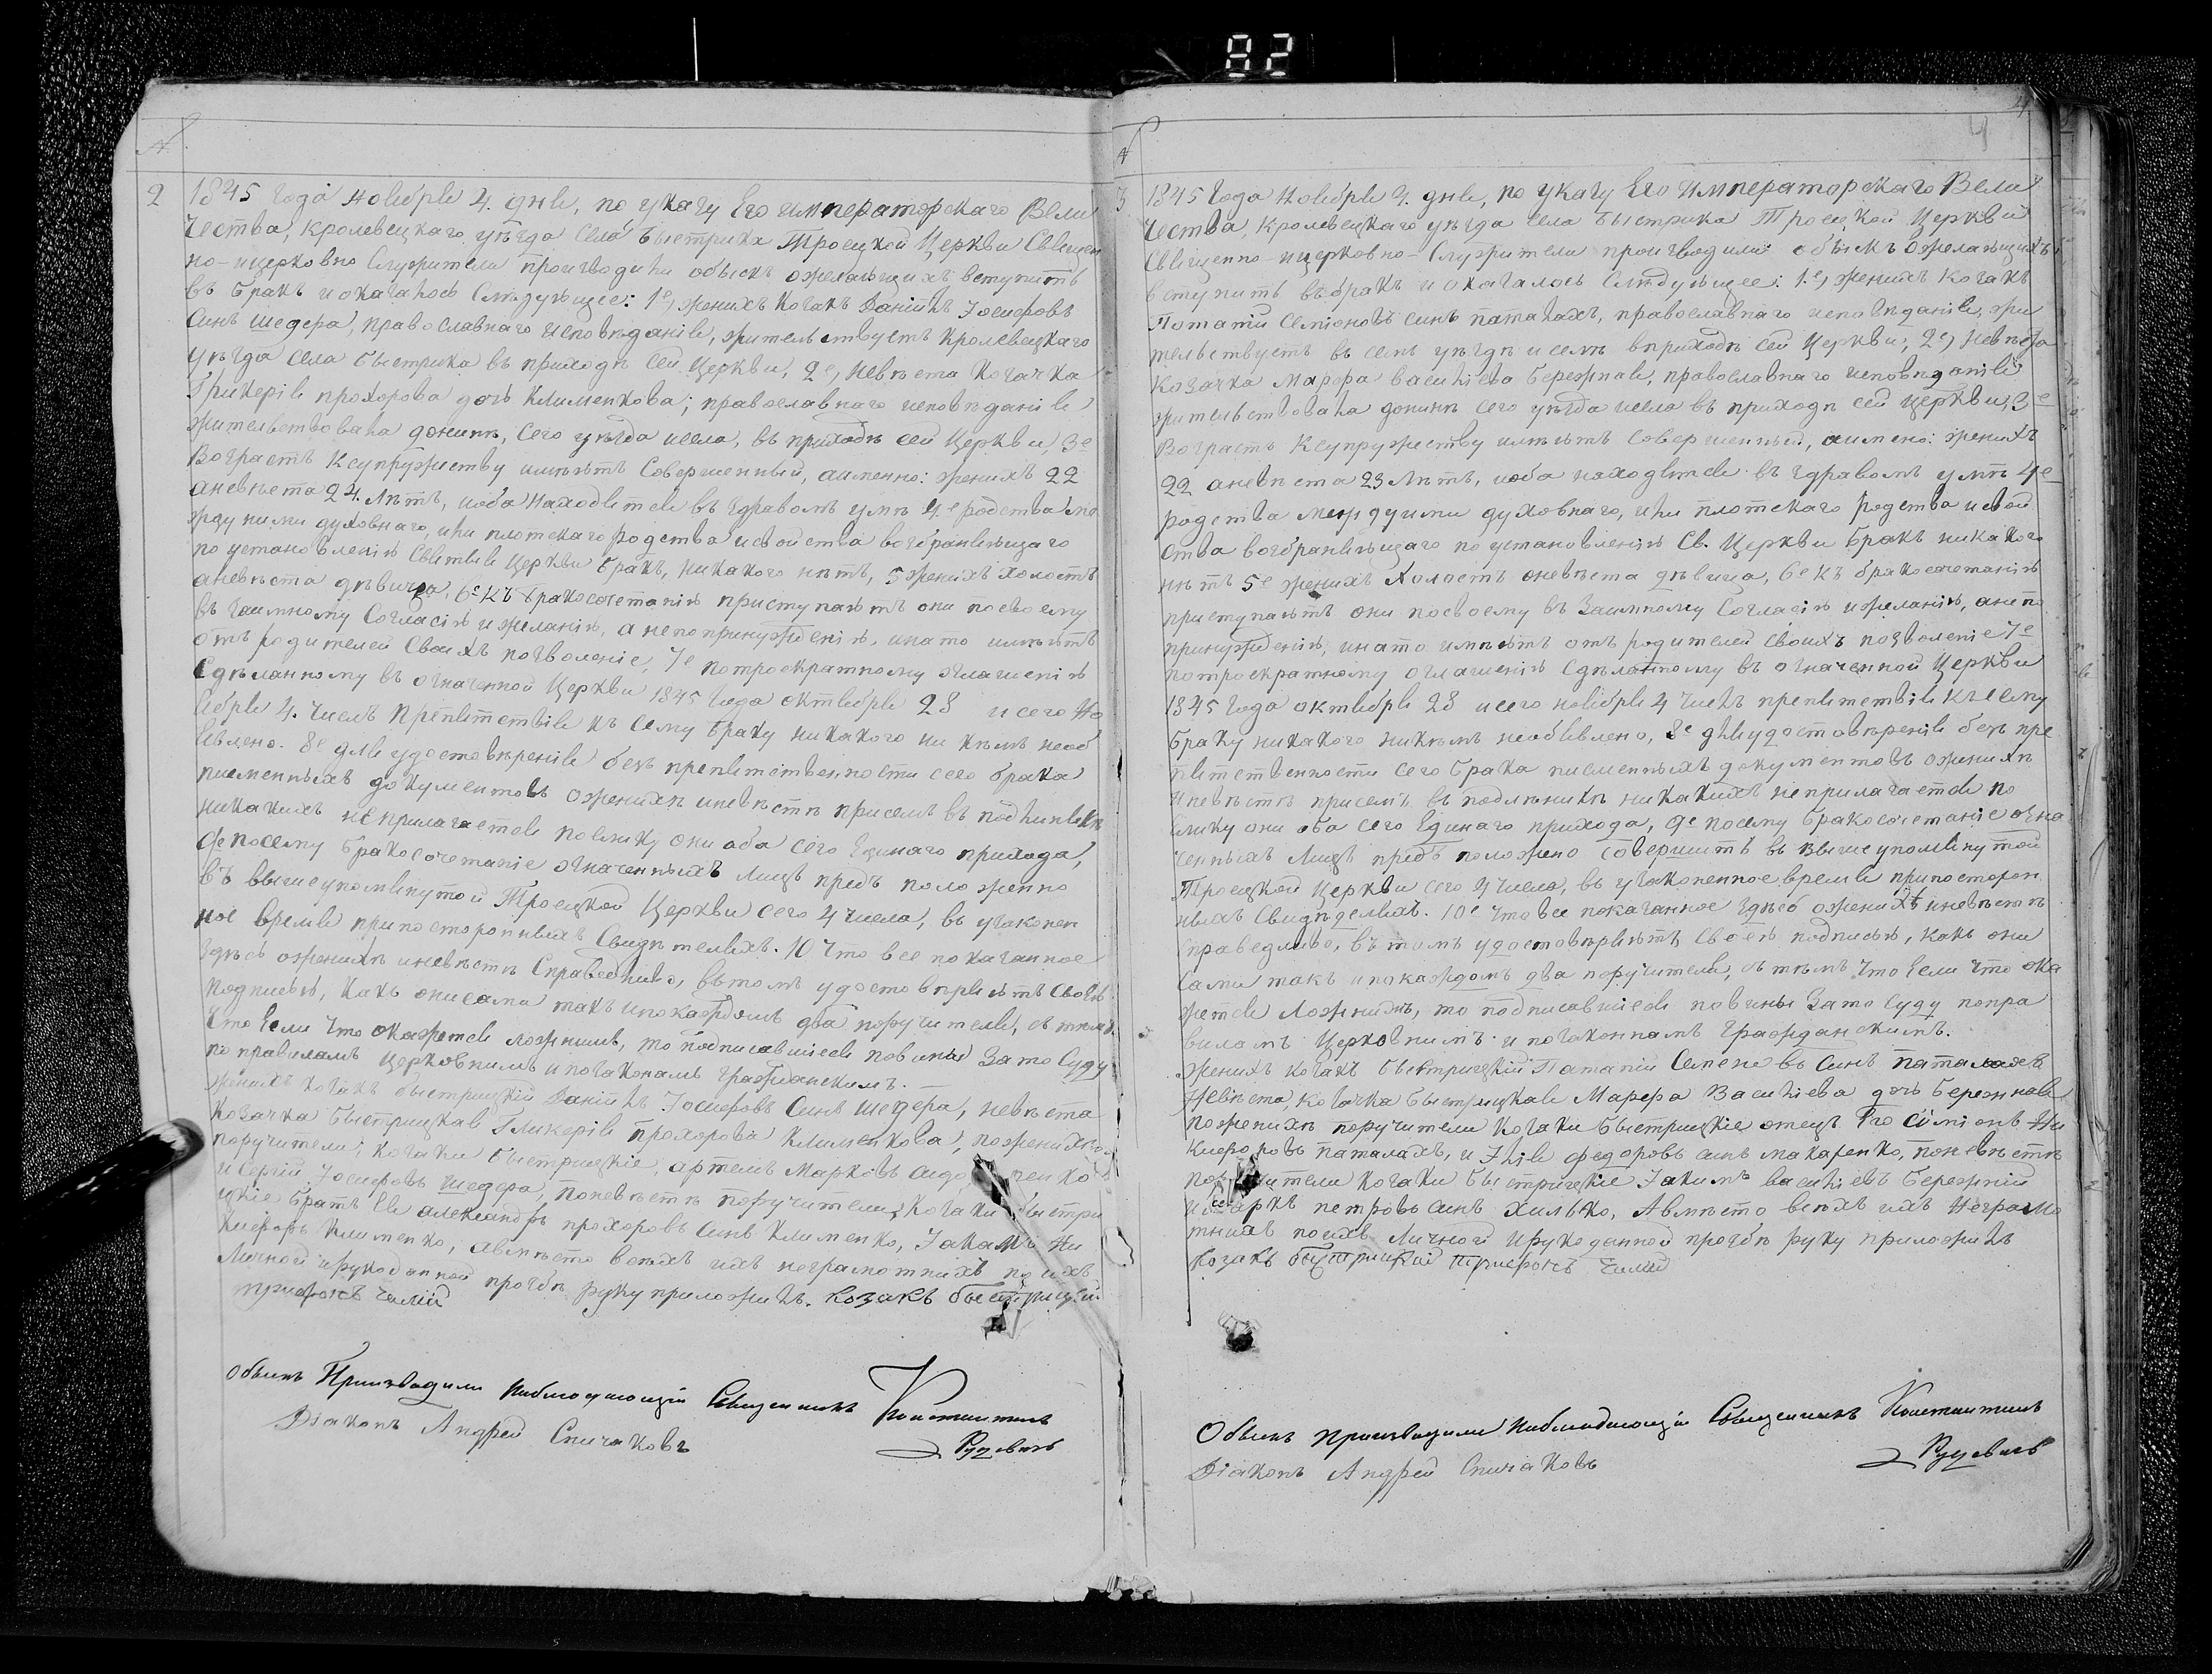 82
2
1845 года ноября 4. дня, по указу Его императорскаго Вели
чества, кролевецкаго уѣзда села быстрика Троецкой Церкви Священ
но-ицерковно служители производили обыскъ ожелающихъ вступить
въ бракъ и оказалось Слѣдующее: 1е, женихъ козакъ Даніилъ Іосифовъ
Синъ шедера, православнаго исповѣданія, жительствуетъ Кролевецкаго
уѣзда села быстрика въ приходѣ сей Церкви, 2е, невѣста козачка
Гликерія прохорова дочь Клименкова; православнаго исповѣданія
жительствовала донинѣ, сего уѣзда исела, въ приходѣ сей Церкви, 3е
Возрастъ Ксупружеству имѣютъ Совершенный, аименно: женихъ 22
аневѣста 24. Лѣтъ, иоба находятся въ здравомъ умѣ 4е родства ме
жду ними духовнаго, или плотскаго родства исвойства возбраняющаго
по установленію Святыя Церкви бракъ, никакого нѣтъ, 5 женихъ холостъ
аневѣста дѣвица, 6е Къ бракосочетанію приступаютъ они посвоему
въ заимному Согласію ижеланію, а непопринужденію, инато имѣютъ
отъ родителей Своихъ позволеніе, 7е потроекратному оглашенію
Сдѣланному въ означенной Церкви 1845 года октября 28 и сего Но
ября 4. числъ Препятствія къ сему браку никакого ни кѣмъ необ
явлено. 8е для удостовѣренія безъ препятственности сего брака
писменныхъ документовъ оженихѣ иневѣстѣ присемъ въ подлинникѣ
никакихъ неприлагается поелику они оба сего Единаго прихода,
9е посему бракосочетаніе означенныхъ лицъ предъ положенно
въ вышеупомянутой Троецкой Церкви сего 4 числа, въ узаконен
ное время припостороннихъ Свидѣтеляхъ. 10 что все показанное
здѣсь оженихѣ иневѣстѣ Справедливо, вътомъ удостовѣряютъ Своею
подписью, какъ они сами такъ ипокаждомъ два поручителя, съ тѣмъ
что если что окажется ложнимъ, то подписавшіеся повинны За то Суду
по правиламъ церковнимъ и позаконамъ гражданскимъ.
женихъ козакъ быстрицкій Даніилъ Іосифовъ Синъ шедера, невѣста
козачка быстрицкая Гликерія Прохорова Клименкова, поженихѣ
поручители; козаки быстрицкіе, артемъ Марковъ
и Сергій Іосифовъ шедера, поневѣстѣ поручители; козаки быстри
цкіе братъ Ея александръ прохоровъ Синъ Клименко, Іакимъ Ни
кифоръ Клименко, авмѣсто всѣхъ ихъ неграмотнихъ по ихъ
личной ирукоданной прозбѣ руку приложилъ. козакъ быстрицкій
трифонъ чалий
Обыскъ Производили наблюдающій Священникъ Константинъ
Рудевичь
Діаконъ Андрей Спичаковъ
4
3
1845 года Ноября 4. дня, по указу Его Императорскаго Вели
чества, Кролевецкаго уѣзда села быстрика Троецкой Церкви
Священно-ицерковно-служители производили обыскъ ожелающихъ
вступить въбракъ и оказалось слѣдующее: 1е, женихъ козакъ
Потапій Семіоновъ синъ паталахъ, православнаго исповѣданія, жи
тельствуетъ въ семъ уѣздѣ и селѣ въприходѣ сей Церкви; 2е, невѣста
козачка Марфа васильева бережная, православнаго исповѣданія
жительствовала донинѣ сего уѣзда исела въ приходѣ сей церкви, 3е
Возрастъ Ксупружеству имѣютъ совершенный, аимено: женихъ
22 аневѣста 23 Лѣтъ, иоба находятся въ здравомъ умѣ 4е
родства между ими духовнаго, или плотскаго родства исвой
ства возбраняющаго по установленію Св. Церкви бракъ никакого
нѣтъ 5е женихъ Холостъ оневѣста дѣвица, 6е къ бракосочетанію
приступаютъ они посвоему въ Заимному Согласію ижеланію, анепо
принужденію, инато имѣютъ отъ родителей Своихъ позволеніе 7е
потроекратному оглашенію сдѣланному въ означенной Церкви
1845 года октября 28 и сего ноября 4 числъ препятствія къ сему
браку никакого никѣмъ необявлено, 8е дляудостовѣренія безъ пре
пятственности сего брака писменныхъ документовъ оженихѣ
Иневѣстѣ присемъ въ подлѣнникѣ никакихъ неприлагается по
елику они оба сего Единаго прихода, 9е посему бракосочетаніе озна
ченныхъ лицъ предъ положено совершить въ вышеупомянутой
Троецкой Церкви сего 4 числа, въ узаконенное время припосторон
ныхъ Свидѣделяхъ. 10е что все показанное здѣсь оженихѣ иневѣстѣ
справедливо, въ томъ удостовѣряютъ Своею подписью, какъ они
Сами такъ и покаждомъ два поручителя, съ тѣмъ что Если что ока
жется Ложнимъ, то подписавшіеся повинны Зато Суду попра
виламъ Церковнимъ и позаконнамъ гражданскимъ.
женихъ козакъ быстрицкій Потапій Семеновъ Синъ паталаха
Невѣста, козачка быстрицкая Марфа Васильева дочь Бережная
поженихѣ поручители козаки быстрицкіе отецъ Его Симіонъ Ни
кифоровъ паталахъ, и Илія федоровъ синъ макаренко, поневѣстѣ
поручители козаки быстрицкіе Іакимъ васильевъ бережній
петровъ синъ хилько, Авмѣсто всѣхъ ихъ Неграмо
тнихъ поихъ личной ирукоданной прозбѣ руку приложилъ
козакъ быстрицкій трифонъ чалий
Обыскъ производили наблюдающій Священникъ Константинъ
Рудевичь
Діаконъ Андрей Спичаковъ